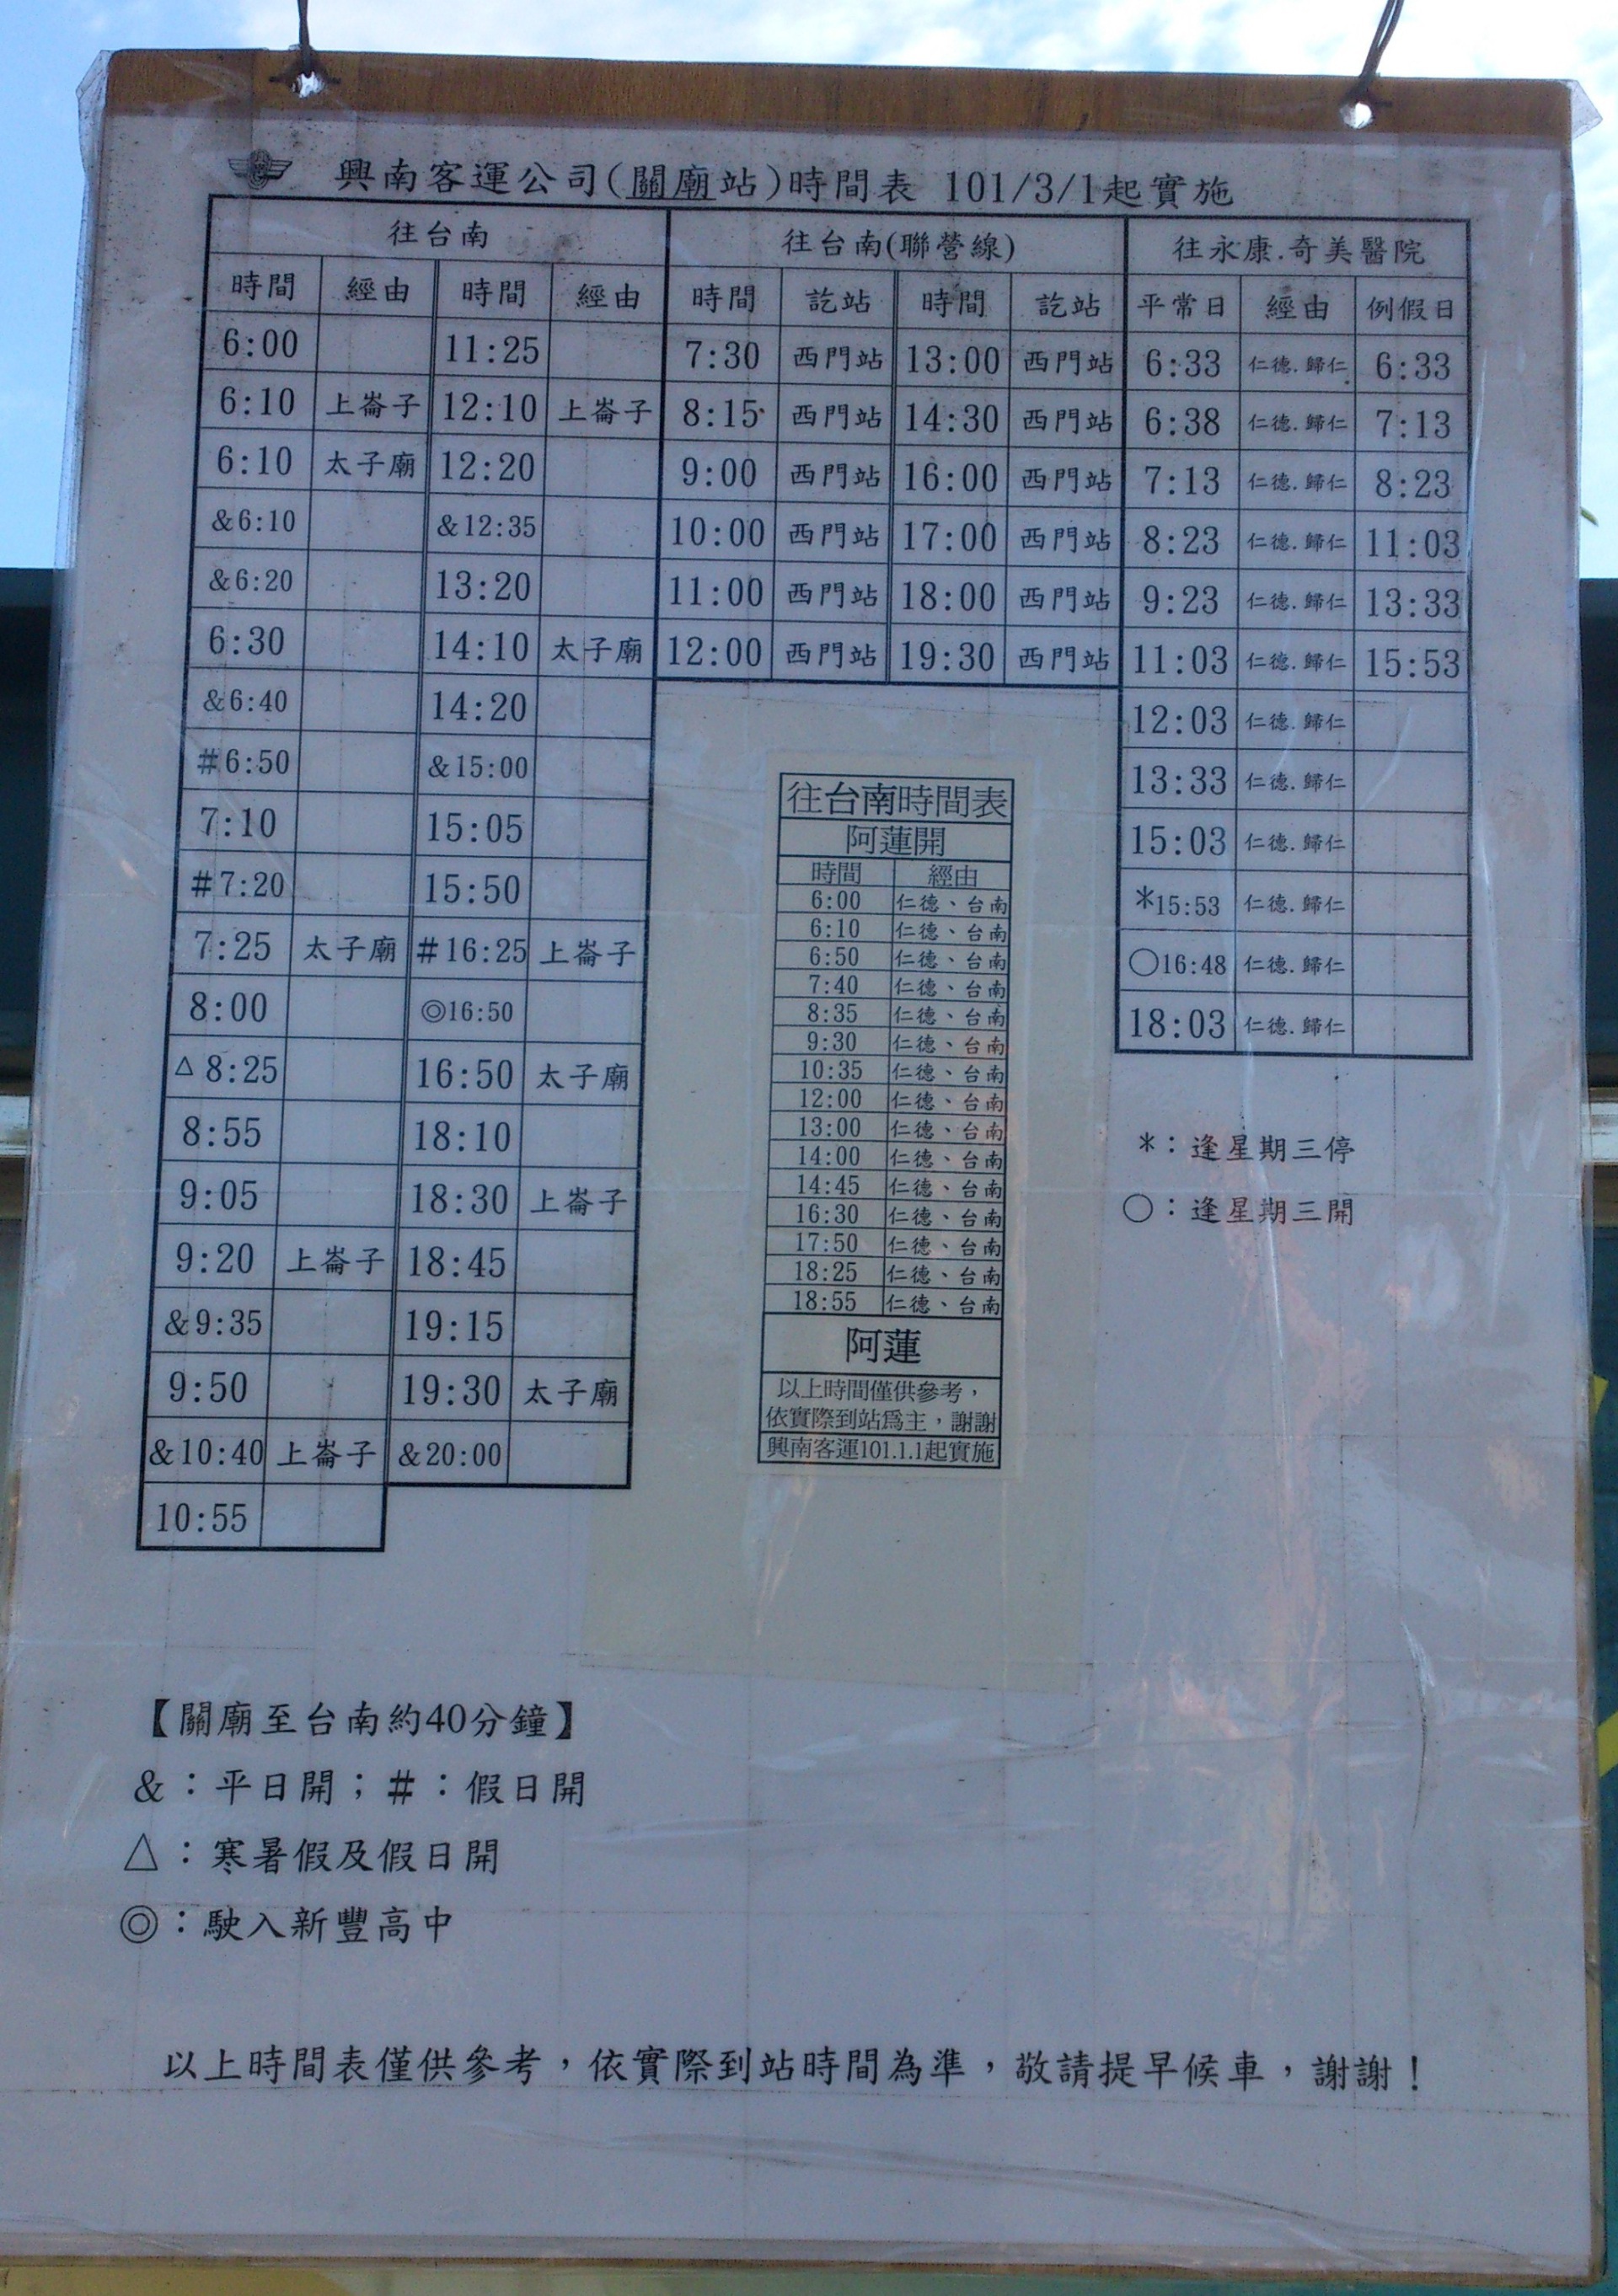 興南客運公司(關廟站)時間表 101/3/1起實施
往台南 往台南(聯營線) 往永康.奇美醫院
時間 經由 時間 經由 時間 訖站 時間 訖站 平常日 經由 例假日
6:00 11:25 7:30 西門站 13:00 西門站 6:33 仁德.歸仁 6:33
6:10 上崙子 12:10 上崙子 8:15 西門站 14:30 西門站 6:38 仁德.歸仁 7:13
6:10 太子廟 12:20 9:00 西門站 16:00 西門站 7:13 仁德.歸仁 8:23
&6:10 &12:35 10:00 西門站 17:00 西門站 8:23 仁德.歸仁 11:03
&6:20 13:20 11:00 西門站 18:00 西門站 9:23 仁德.歸仁 13:33
6:30 14:10 太子廟 12:00 西門站 19:30 西門站 11:03 仁德.歸仁 15:53
&6:40 14:20 12:03 仁德.歸仁
#6:50 &15:00 13:33 仁德.歸仁
7:10 15:05 15:03 仁德.歸仁
#7:20 15:50 *15:53 仁德.歸仁
7:25 太子廟 #16:25 上崙子 ○16:48 仁德.歸仁
8:00 ◎16:50 18:03 仁德.歸仁
△8:25 16:50 太子廟
8:55 18:10
9:05 18:30 上崙子
9:20 上崙子 18:45
&9:35 19:15
9:50 19:30 太子廟
&10:40 上崙子 &20:00
10:55
往台南時間表
阿蓮開
時間 經由
6:00 仁德、台南
6:10 仁德、台南
6:50 仁德、台南
7:40 仁德、台南
8:35 仁德、台南
9:30 仁德、台南
10:35 仁德、台南
12:00 仁德、台南
13:00 仁德、台南
14:00 仁德、台南
14:45 仁德、台南
16:30 仁德、台南
17:50 仁德、台南
18:25 仁德、台南
18:55 仁德、台南
阿蓮
以上時間僅供參考，
依實際到站為主，謝謝
興南客運101.1.1起實施
*：逢星期三停
○：逢星期三開
【關廟至台南約40分鐘】
&：平日開；#：假日開
△：寒暑假及假日開
◎：駛入新豐高中
以上時間表僅供參考，依實際到站時間為準，敬請提早候車，謝謝！